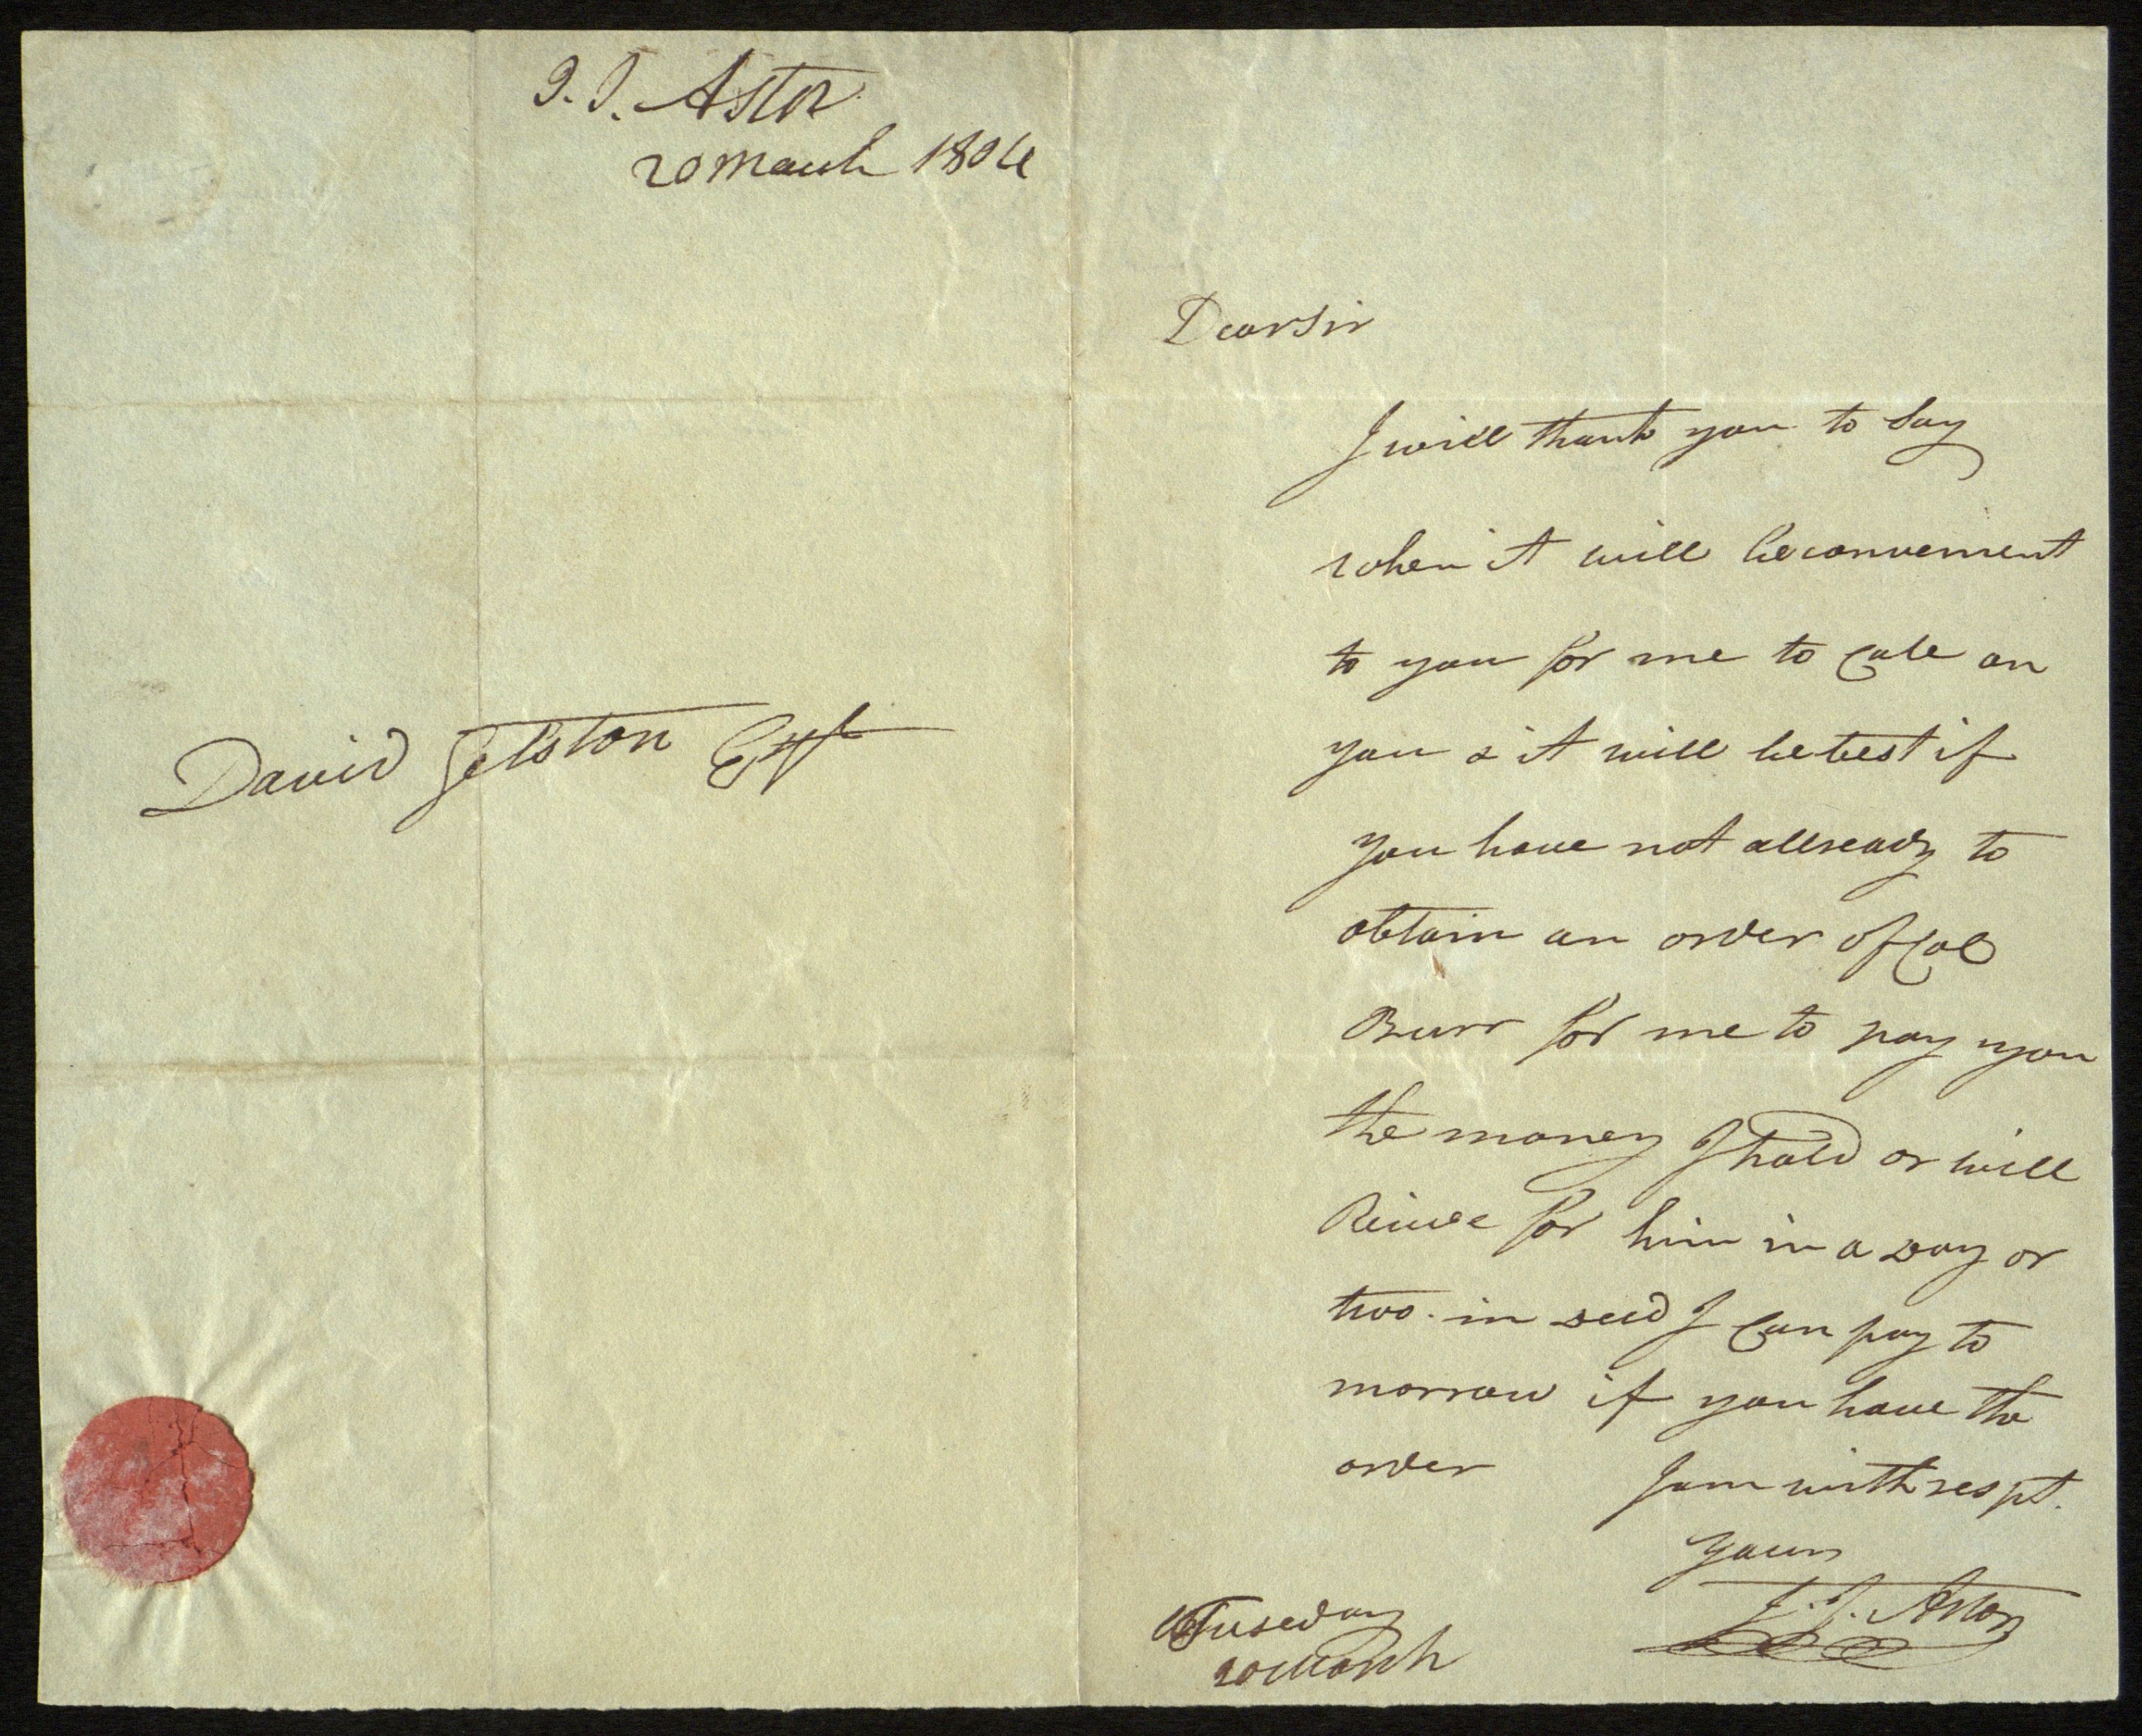 J. J. Astor
20 March 1804
David Gelston Esqr
Dear Sir
I will thank you to Say
when it will be convenient
to you for me to Call on
you & it will be best if
you have not allready to
obtain an order of Col
Burr for me to pay you
the money I hold or will
for him in a day or
two. in deed I Can pay to
morrow if you have the
order I am with respt.
Yours
J. J. Astor
Tuseday
20 March